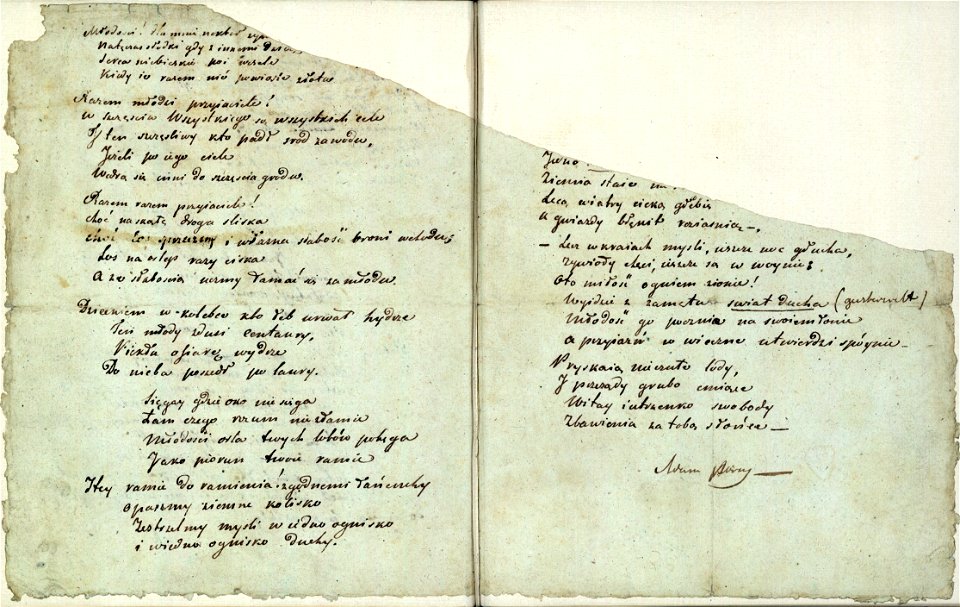 Młodości! Dla mnie nektar
Natęczas słodki gdy z innemi
Serca niebieskie poi wesele
Kiedy ie razem nić powiąże złota
Razem młodzi przyjaciele!
W szczęściu Wszystkiego są wszystkich cele
I ten szczęśliwy kto padł sród zawodu,
Jeżeli po iego ciele
Wdarł się inni do szczęścia grodu.
Razem razem przyiaciele!
Choć naskałę droga śliska
choć i własna słabość broni wchodu;
Los na ręczy ciska
A ze słabością łamać za młodu.
Dzieckiem w kolebce kto łeb urwał hydrze
Ten młody zdusi centaury,
Piekłu ofiarę wydrze
Do nieba poszedł po laury.
Sięgay gdzie oko niesięga
Łam czego rozum niezłamie
Młodości orla twych lotów potęga
Jako piorun twoie ramie
Hey ramie do ramienia! zgodnemi łańcuchy
opaszmy ziemne kolisko
Zestrzelmy myśli w iedno ognisko
i wiedno ognisko duchy.
Ziemia staie
Lecą wiatry cieką głębie
a gwiazdy błękit roziaśnią –,
– Lecz wkraiach myśli, ieszcze noc głucha,
żywioły chęci, ieszcze są w woynie;
Oto miłość ogniem zionie!
Wyidzie z zamętu świat ducha
Młodość go pocznie na swoiem łonie
a przyiaźń w wieczne utwierdzi spóynie –
Pryskaią nieczułe lody,
I przesądy grubo ćmiące
Witay iutrzenko swobody
Zbawienia za tobą słońce –
Adam